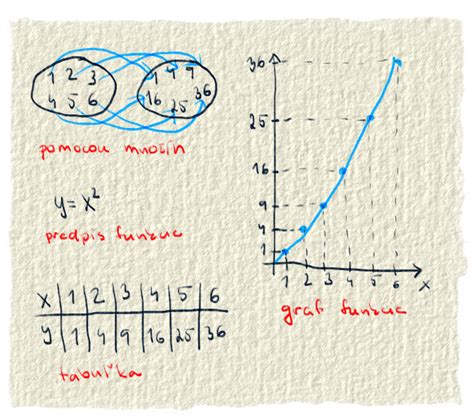 1 2 3
4 5 6
1 4 9
16 25 36
pomocou množín
y = x²
predpis funkcie
x | 1 | 2 | 3 | 4 | 5 | 6
y | 1 | 4 | 9 | 16 | 25 | 36
tabuľka
36
25
16
9
4
1
1 2 3 4 5 6 x
graf funkcie